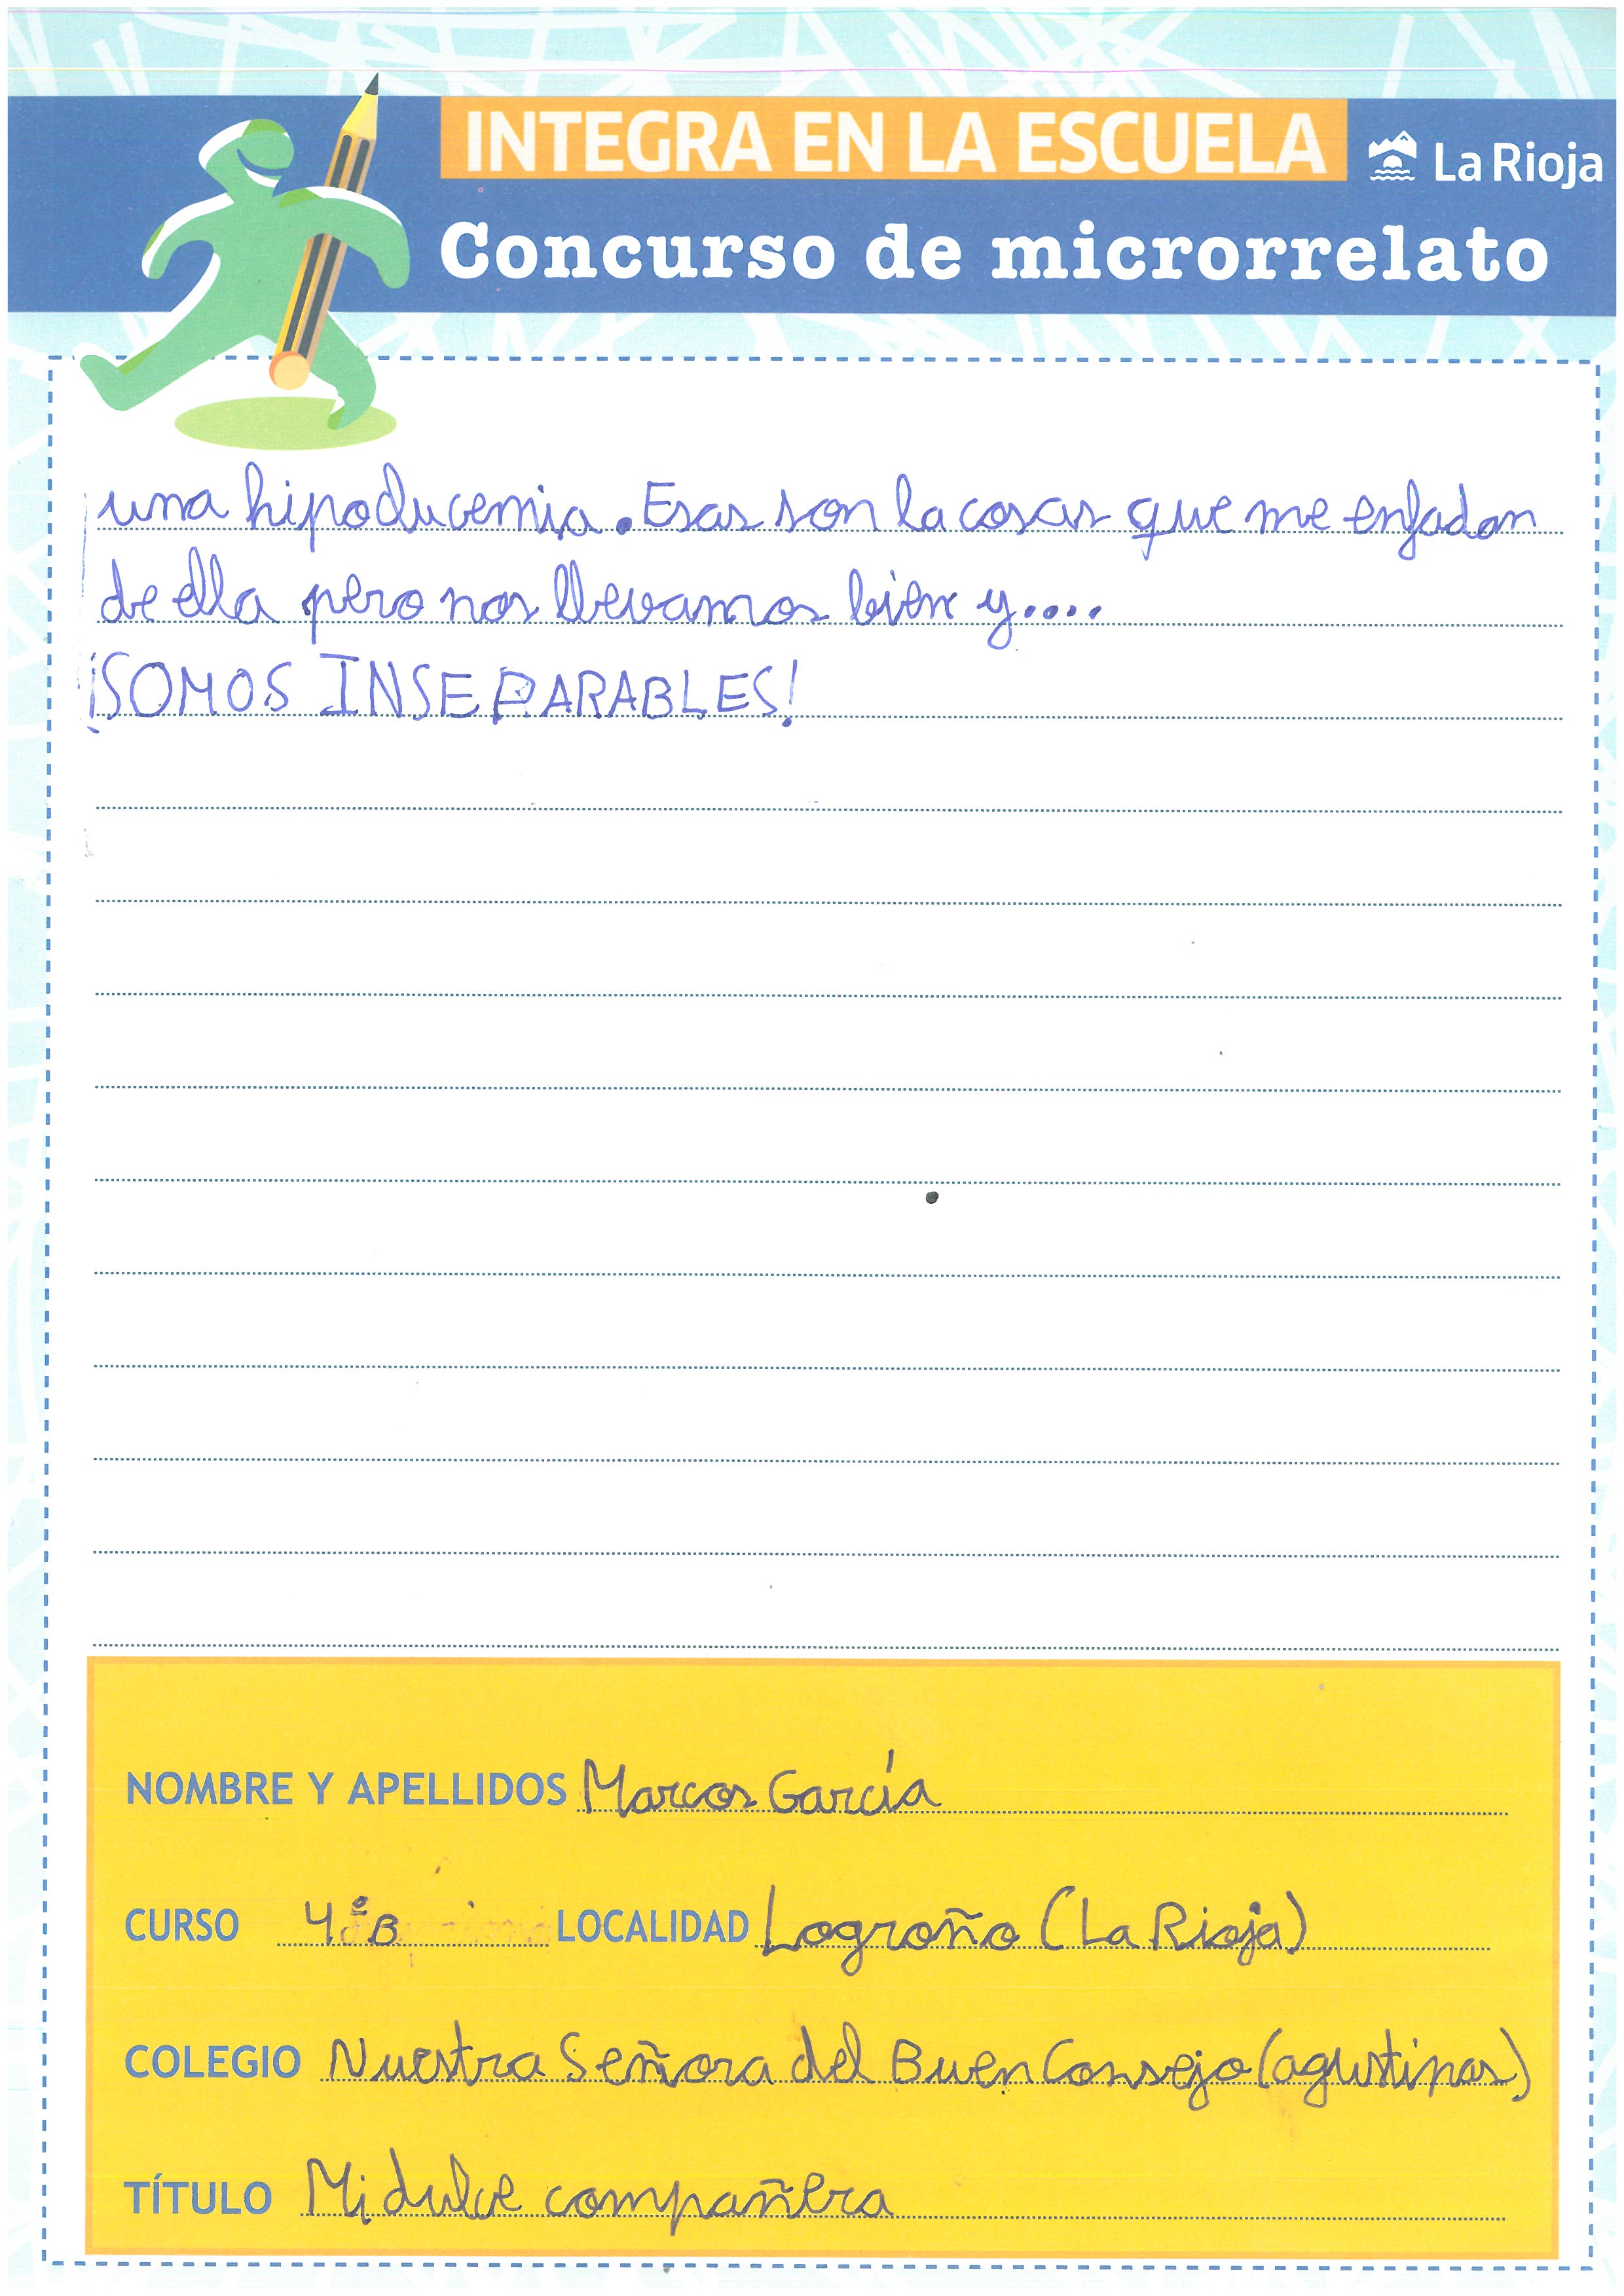 INTEGRA EN LA ESCUELA
La Rioja
Concurso de microrrelato
una hipoducemia. Esas son la cosas que me enfadan
de ella pero nos llevamos bien y....
¡SOMOS INSEPARABLES!
NOMBRE Y APELLIDOS Marcos García
CURSO 4ºB LOCALIDAD Logroño (La Rioja)
COLEGIO Nuestra Señora del Buen Consejo (agustinas)
TÍTULO Mi dulce compañera